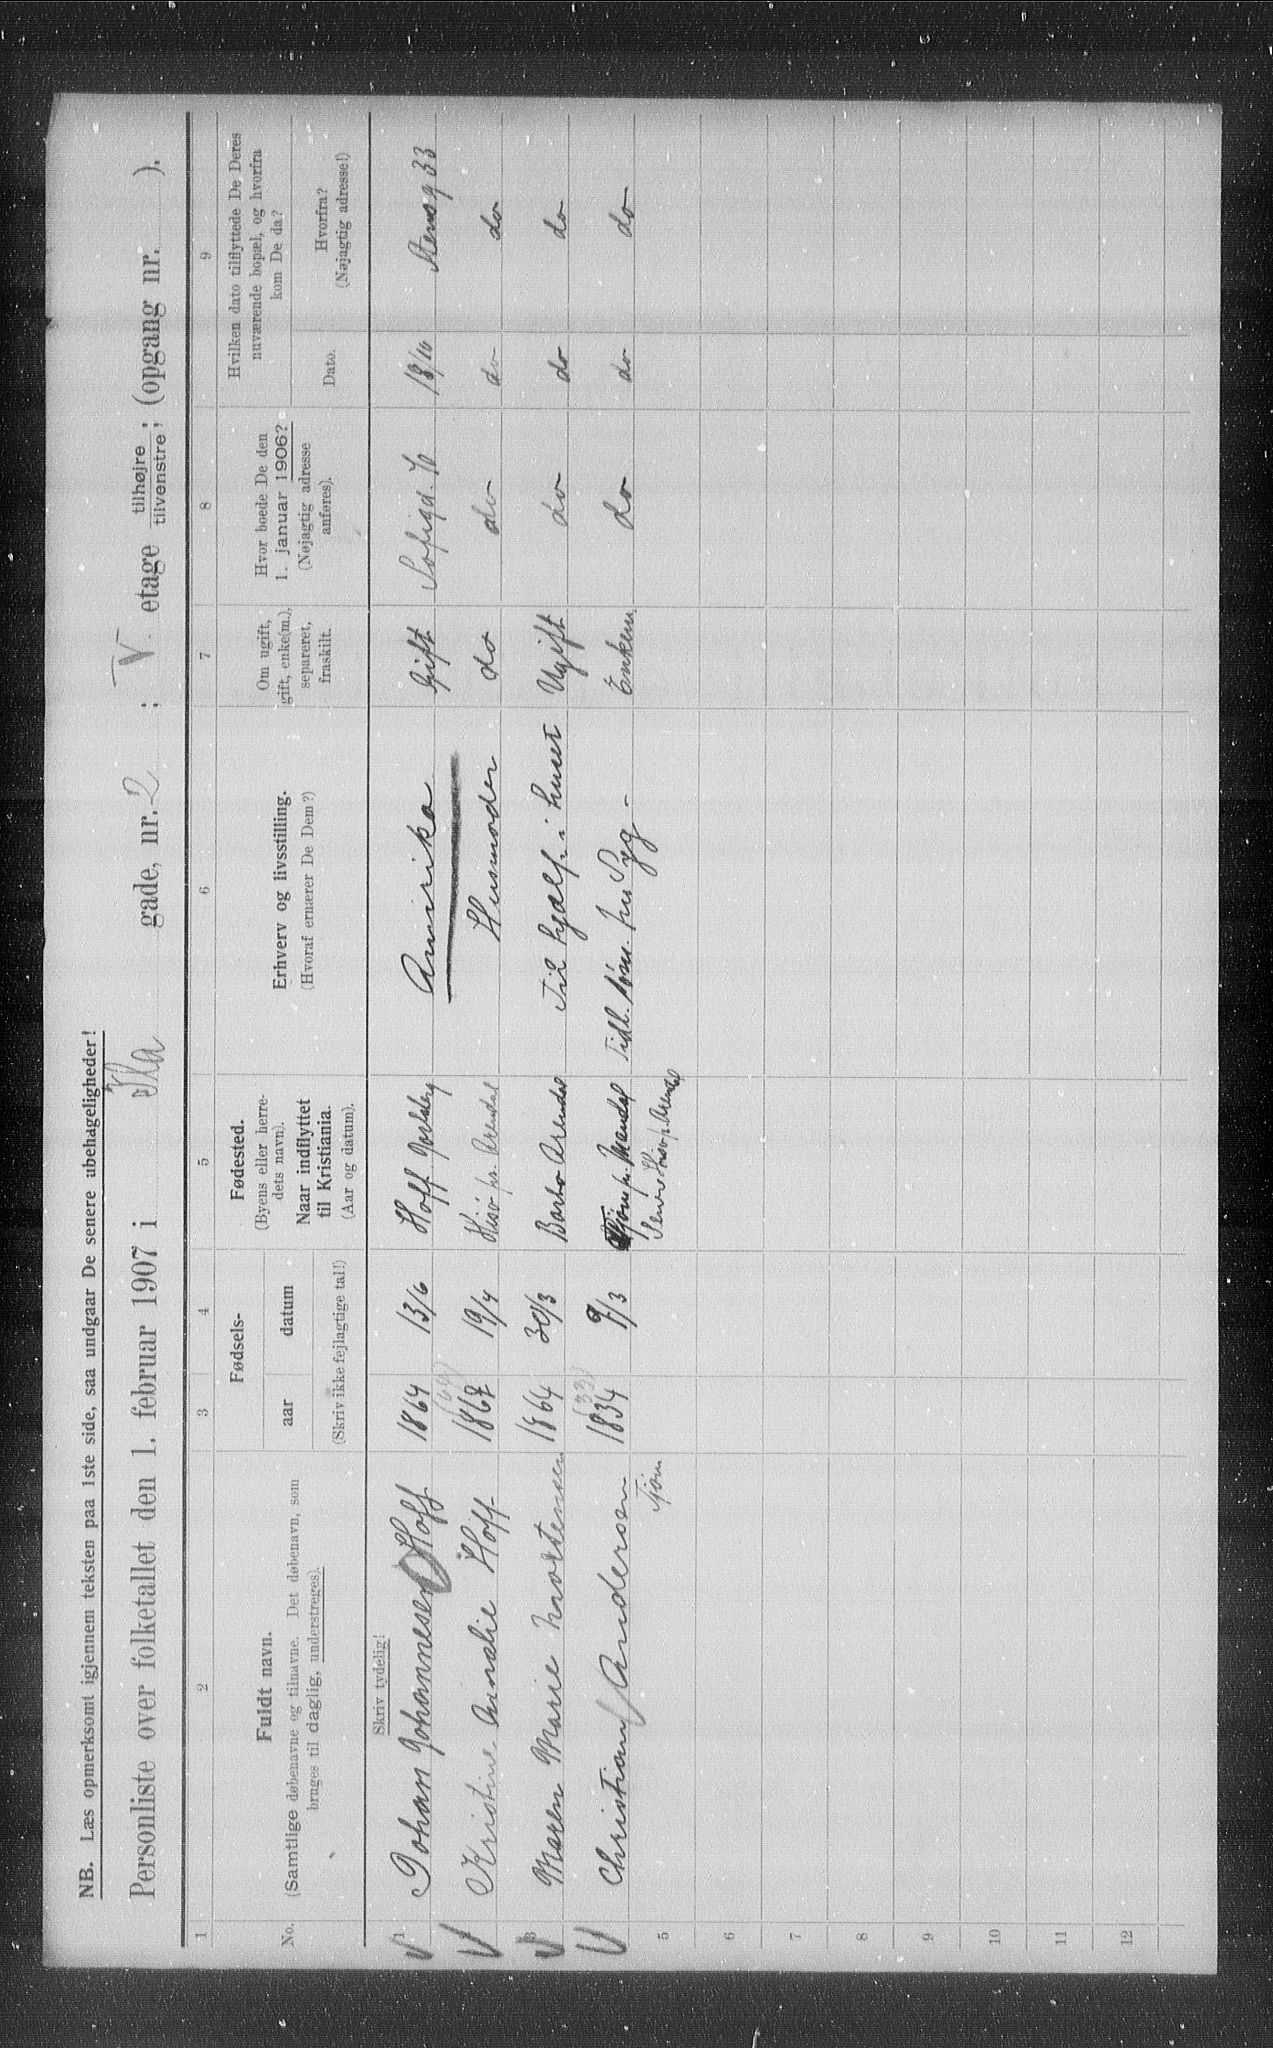 NB. Læs opmerksomt igjennem teksten paa 1ste side, saa undgaar De senere ubehageligheder!
Personliste over folketallet den 1. februar 1907 i Ila gade, nr. 2 ; V. etage tilhøjre tilvenstre; (opgang nr. ).
1 2 3 4 5 6 7 8 9
No.
Fuldt navn.
(Samtlige døbenavne og tilnavne. Det døbenavn, som
bruges til daglig, understreges).
Fødsels-
aar datum
(Skriv ikke fejlagtige tal!)
Fødested.
(Byens eller herre-
dets navn).
Naar indflyttet
til Kristiania.
(Aar og datum).
Erhverv og livsstilling.
(Hvoraf ernærer De Dem?)
Om ugift,
gift, enke(m.),
separeret,
fraskilt.
Hvor boede De den
1. januar 1906?
(Nøjagtig adresse
anføres).
Hvilken dato tilflyttede De Deres
nuværende bopæl, og hvorfra
kom De da?
Dato.
Hvorfra?
(Nøjagtig adresse!)
Skriv tydelig!
1 Johan Johannesen Hoff 1864 13/6 Hoff Amirika Gift Sofigd. 10 18/10 Stensg 33
(64)
Kristine Amalie Hoff 1867 19/4 Hisø pr. Arendal Husmoder do do do do
3 Maren Marie Mortensen 1864 30/3 Barbo Arendal Til hjælp i huset Ugift do do do
(33)
Christian Andersen 1834 9/3 pr. Mandal Tidl. Syg - Enkem do do do
Tjøm Hisø pr. Arendal
5
6
7
8
9
10
11
12